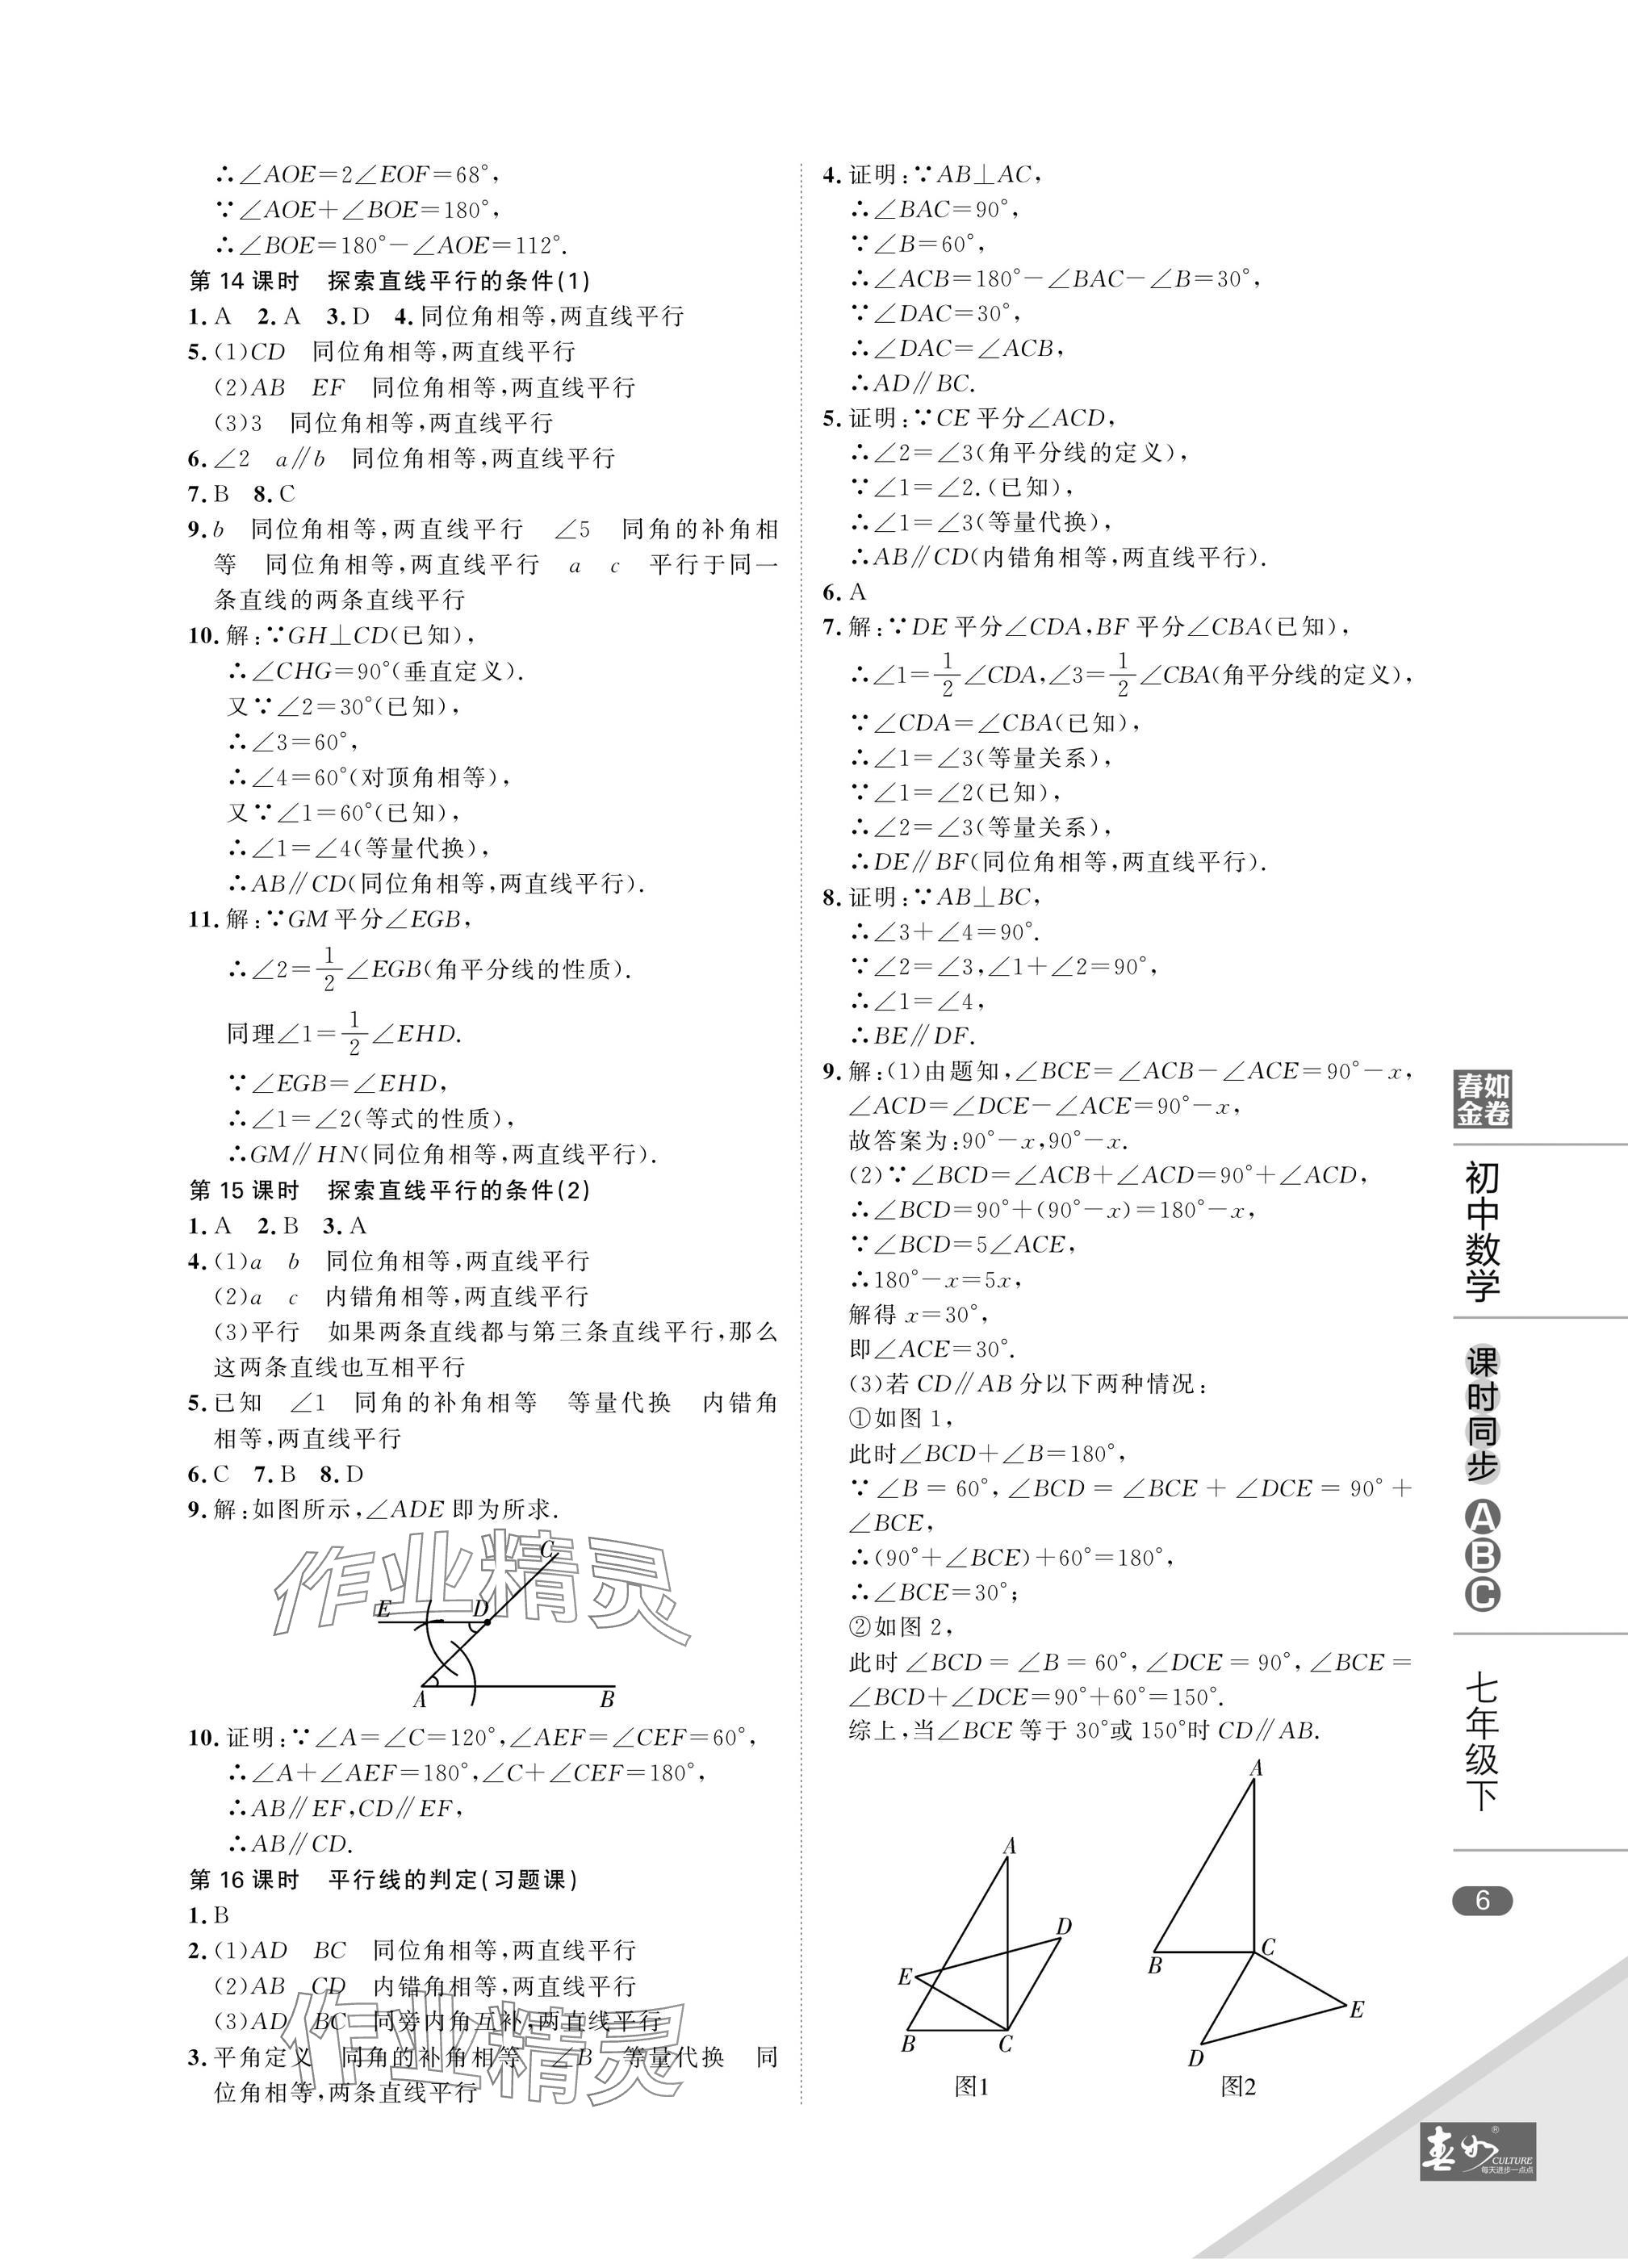 ∴∠AOE=2∠EOF=68°,
∵∠AOE+∠BOE=180°,
∴∠BOE=180°-∠AOE=112°.
第 14 课时　探索直线平行的条件(1)
1. A　2. A　3. D　4. 同位角相等,两直线平行
5. (1)CD　同位角相等,两直线平行
(2)AB　EF　同位角相等,两直线平行
(3)3　同位角相等,两直线平行
6. ∠2　a∥b　同位角相等,两直线平行
7. B　8. C
9. b　同位角相等,两直线平行　∠5　同角的补角相
等　同位角相等,两直线平行　a　c　平行于同一
条直线的两条直线平行
10. 解:∵GH⊥CD(已知),
∴∠CHG=90°(垂直定义).
又∵∠2=30°(已知),
∴∠3=60°,
∴∠4=60°(对顶角相等),
又∵∠1=60°(已知),
∴∠1=∠4(等量代换),
∴AB∥CD(同位角相等,两直线平行).
11. 解:∵GM 平分∠EGB,
∴∠2=1/2∠EGB(角平分线的性质).
同理∠1=1/2∠EHD.
∵∠EGB=∠EHD,
∴∠1=∠2(等式的性质),
∴GM∥HN(同位角相等,两直线平行).
第 15 课时　探索直线平行的条件(2)
1. A　2. B　3. A
4. (1)a　b　同位角相等,两直线平行
(2)a　c　内错角相等,两直线平行
(3)平行　如果两条直线都与第三条直线平行,那么
这两条直线也互相平行
5. 已知　∠1　同角的补角相等　等量代换　内错角
相等,两直线平行
6. C　7. B　8. D
9. 解:如图所示,∠ADE 即为所求.
作业精灵
C
E　D
A　B
10. 证明:∵∠A=∠C=120°,∠AEF=∠CEF=60°,
∴∠A+∠AEF=180°,∠C+∠CEF=180°,
∴AB∥EF,CD∥EF,
∴AB∥CD.
第 16 课时　平行线的判定(习题课)
1. B
2. (1)AD　BC　同位角相等,两直线平行
(2)AB　CD　内错角相等,两直线平行
(3)AD　BC　同旁内角互补,两直线平行
作业精灵
3. 平角定义　同角的补角相等　∠B　等量代换　同
位角相等,两条直线平行
4. 证明:∵AB⊥AC,
∴∠BAC=90°,
∵∠B=60°,
∴∠ACB=180°-∠BAC-∠B=30°,
∵∠DAC=30°,
∴∠DAC=∠ACB,
∴AD∥BC.
5. 证明:∵CE 平分∠ACD,
∴∠2=∠3(角平分线的定义),
∵∠1=∠2.(已知),
∴∠1=∠3(等量代换),
∴AB∥CD(内错角相等,两直线平行).
6. A
7. 解:∵DE 平分∠CDA,BF 平分∠CBA(已知),
∴∠1=1/2∠CDA,∠3=1/2∠CBA(角平分线的定义),
∵∠CDA=∠CBA(已知),
∴∠1=∠3(等量关系),
∵∠1=∠2(已知),
∴∠2=∠3(等量关系),
∴DE∥BF(同位角相等,两直线平行).
8. 证明:∵AB⊥BC,
∴∠3+∠4=90°.
∵∠2=∠3,∠1+∠2=90°,
∴∠1=∠4,
∴BE∥DF.
9. 解:(1)由题知,∠BCE=∠ACB-∠ACE=90°-x,
∠ACD=∠DCE-∠ACE=90°-x,
故答案为:90°-x,90°-x.
(2)∵∠BCD=∠ACB+∠ACD=90°+∠ACD,
∴∠BCD=90°+(90°-x)=180°-x,
∵∠BCD=5∠ACE,
∴180°-x=5x,
解得 x=30°,
即∠ACE=30°.
(3)若 CD∥AB 分以下两种情况:
①如图 1,
此时∠BCD+∠B=180°,
∵∠B=60°,∠BCD=∠BCE+∠DCE=90°+
∠BCE,
∴(90°+∠BCE)+60°=180°,
∴∠BCE=30°;
②如图 2,
此时∠BCD=∠B=60°,∠DCE=90°,∠BCE=
∠BCD+∠DCE=90°+60°=150°.
综上,当∠BCE 等于 30°或 150°时 CD∥AB.
A
D
E
B　C
图1
A
B　C
E
D
图2
春如
金卷
初中数学
课时同步
ABC
七年级下
6
春如®
CULTURE
每天进步一点点